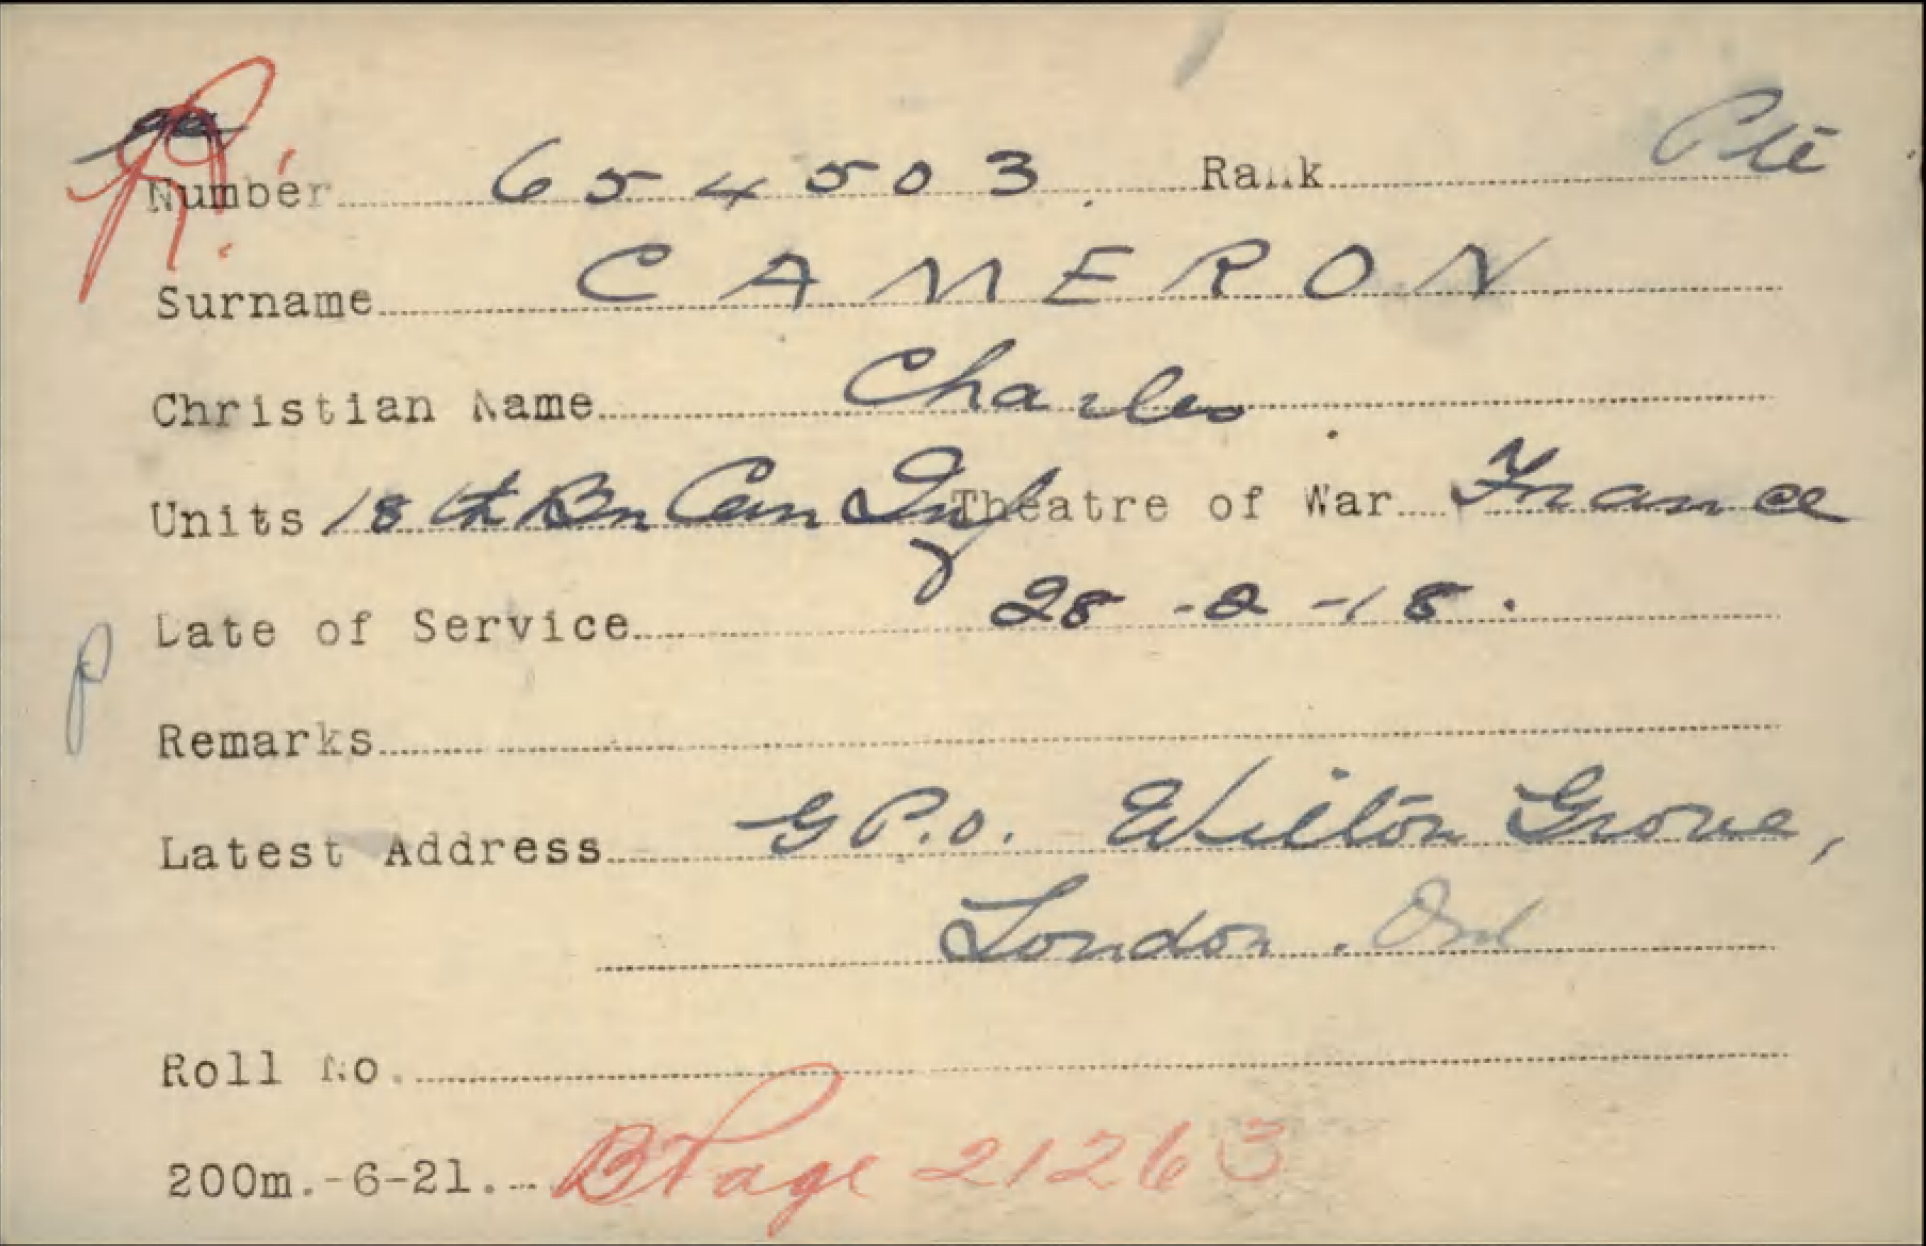 Number 654503. Rank Pte
Surname CAMERON
Christian Name Charles
Units 18th Bn Can Inf Theatre of War France
Date of Service 28-2-18.
Remarks
Latest Address G P.O. Wilton Grove,
London. Ont
Roll No.
200m.-6-21. B Page 21263